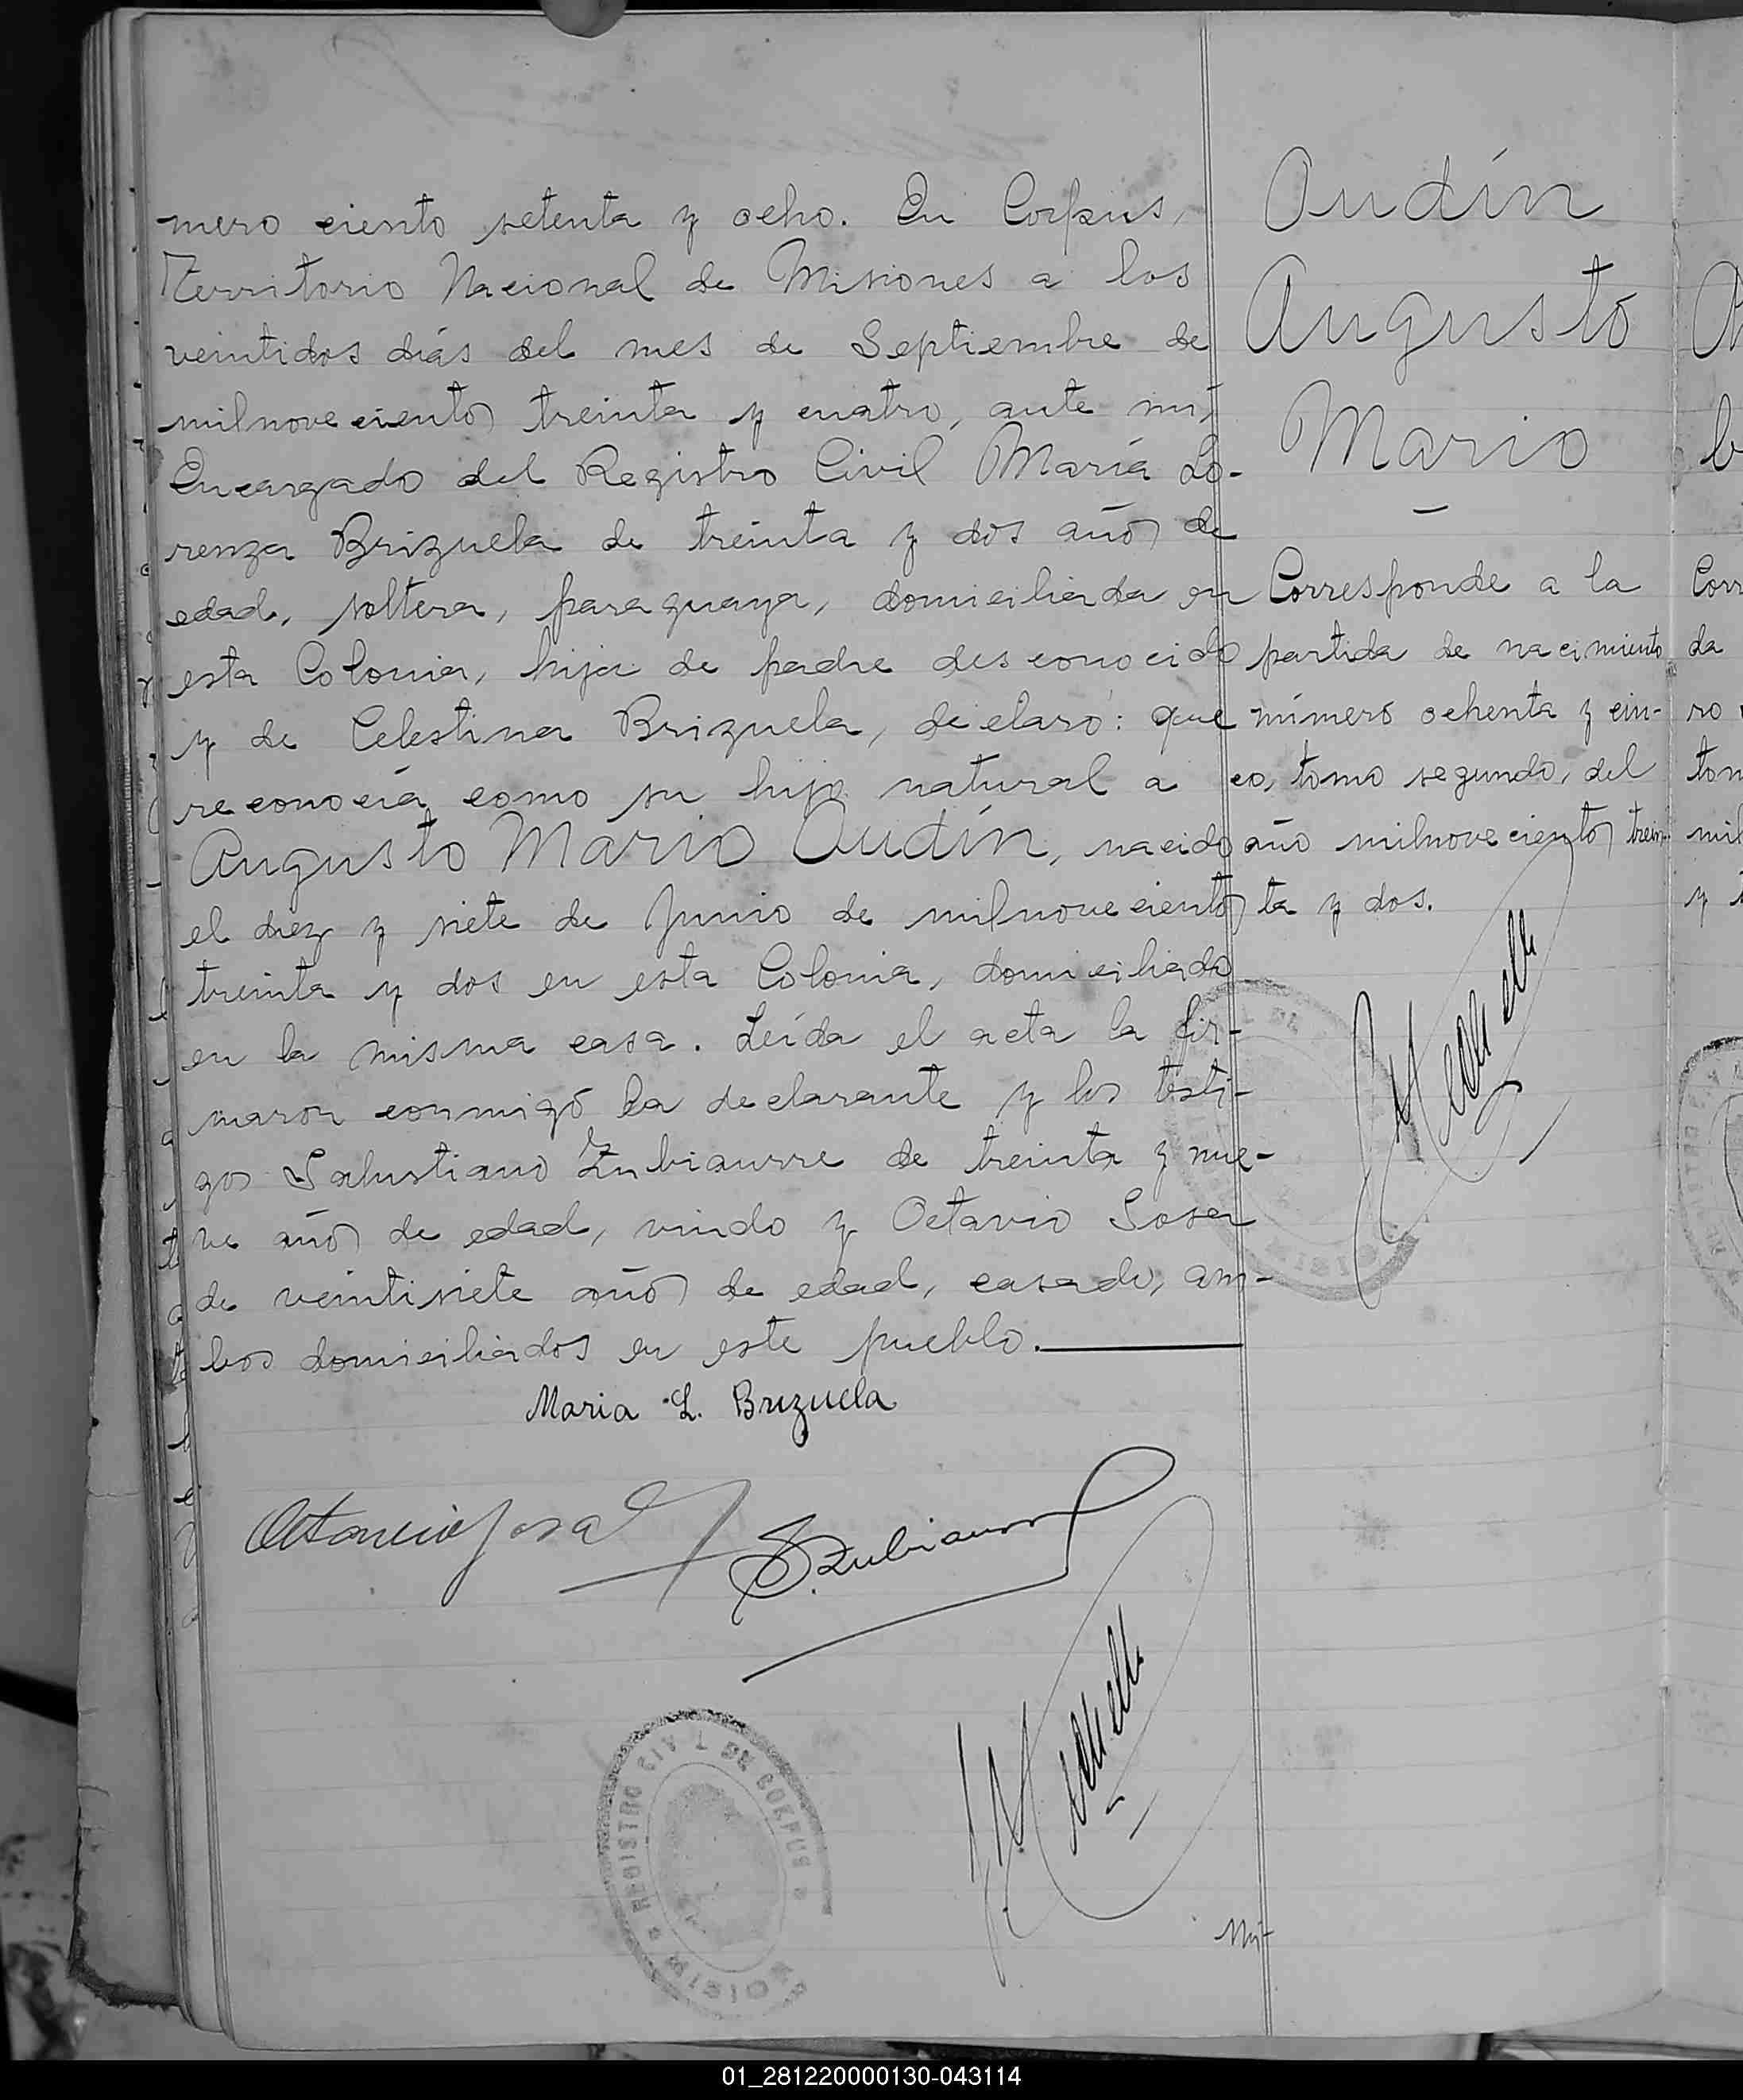 mero ciento setenta y ocho. En Corpus,
Territorio Nacional de Misiones a los
veintidos dias del mes de Septiembre de
milnovecientos treinta y cuatro, ante mi,
Encargado del Registro Civil María Lo-
renza Brizuela de treinta y dos años de
edad, soltera, paraguaya, domiciliada en
esta Colonia, hija de padre desconocido
y de Celestina Brizuela, declaró: que
reconocía como su hijo natural a
Augusto Mario Oudín, nacido
el diez y siete de Junio de milnovecientos
treinta y dos en esta Colonia, domiciliado
en la misma casa. Leída el acta la fir-
maron conmigo la declarante y los testi-
gos Salustiano Zubiaurre de treinta y nue-
ve años de edad, viudo y Octavio Sosa
de veintisiete años de edad, casado, am-
bos domiciliados en este pueblo.
Maria L. Brizuela
Octavio Sosa
S. Zubiaurre
REGISTRO CIVIL DE CORPUS
MISIONES
Mi-
Oudín
Augusto
Mario
Corresponde a la
partida de nacimiento
número ochenta y cin-
co, tomo segundo, del
año milnovecientos trein-
ta y dos.
Corr
da
ro
tom
mil
y
01_281220000130-043114